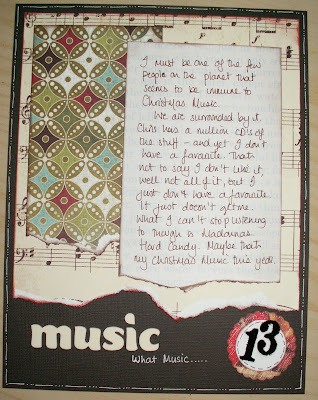 I must be one of the few
people on the planet that
seems to be immune to
Christmas Music.
We are surrounded by it.
Chris has a million CD's of
this stuff - and yet I don't
have a favorite. Thats
not to say I don't like it,
well not all of it, but I
just don't have a favorite.
It just doesn't get me.
What I can't stop listening
to though is Madonnas
Hard Candy. Maybe thats
my Christmas Music this year.
music
What Music.....
13